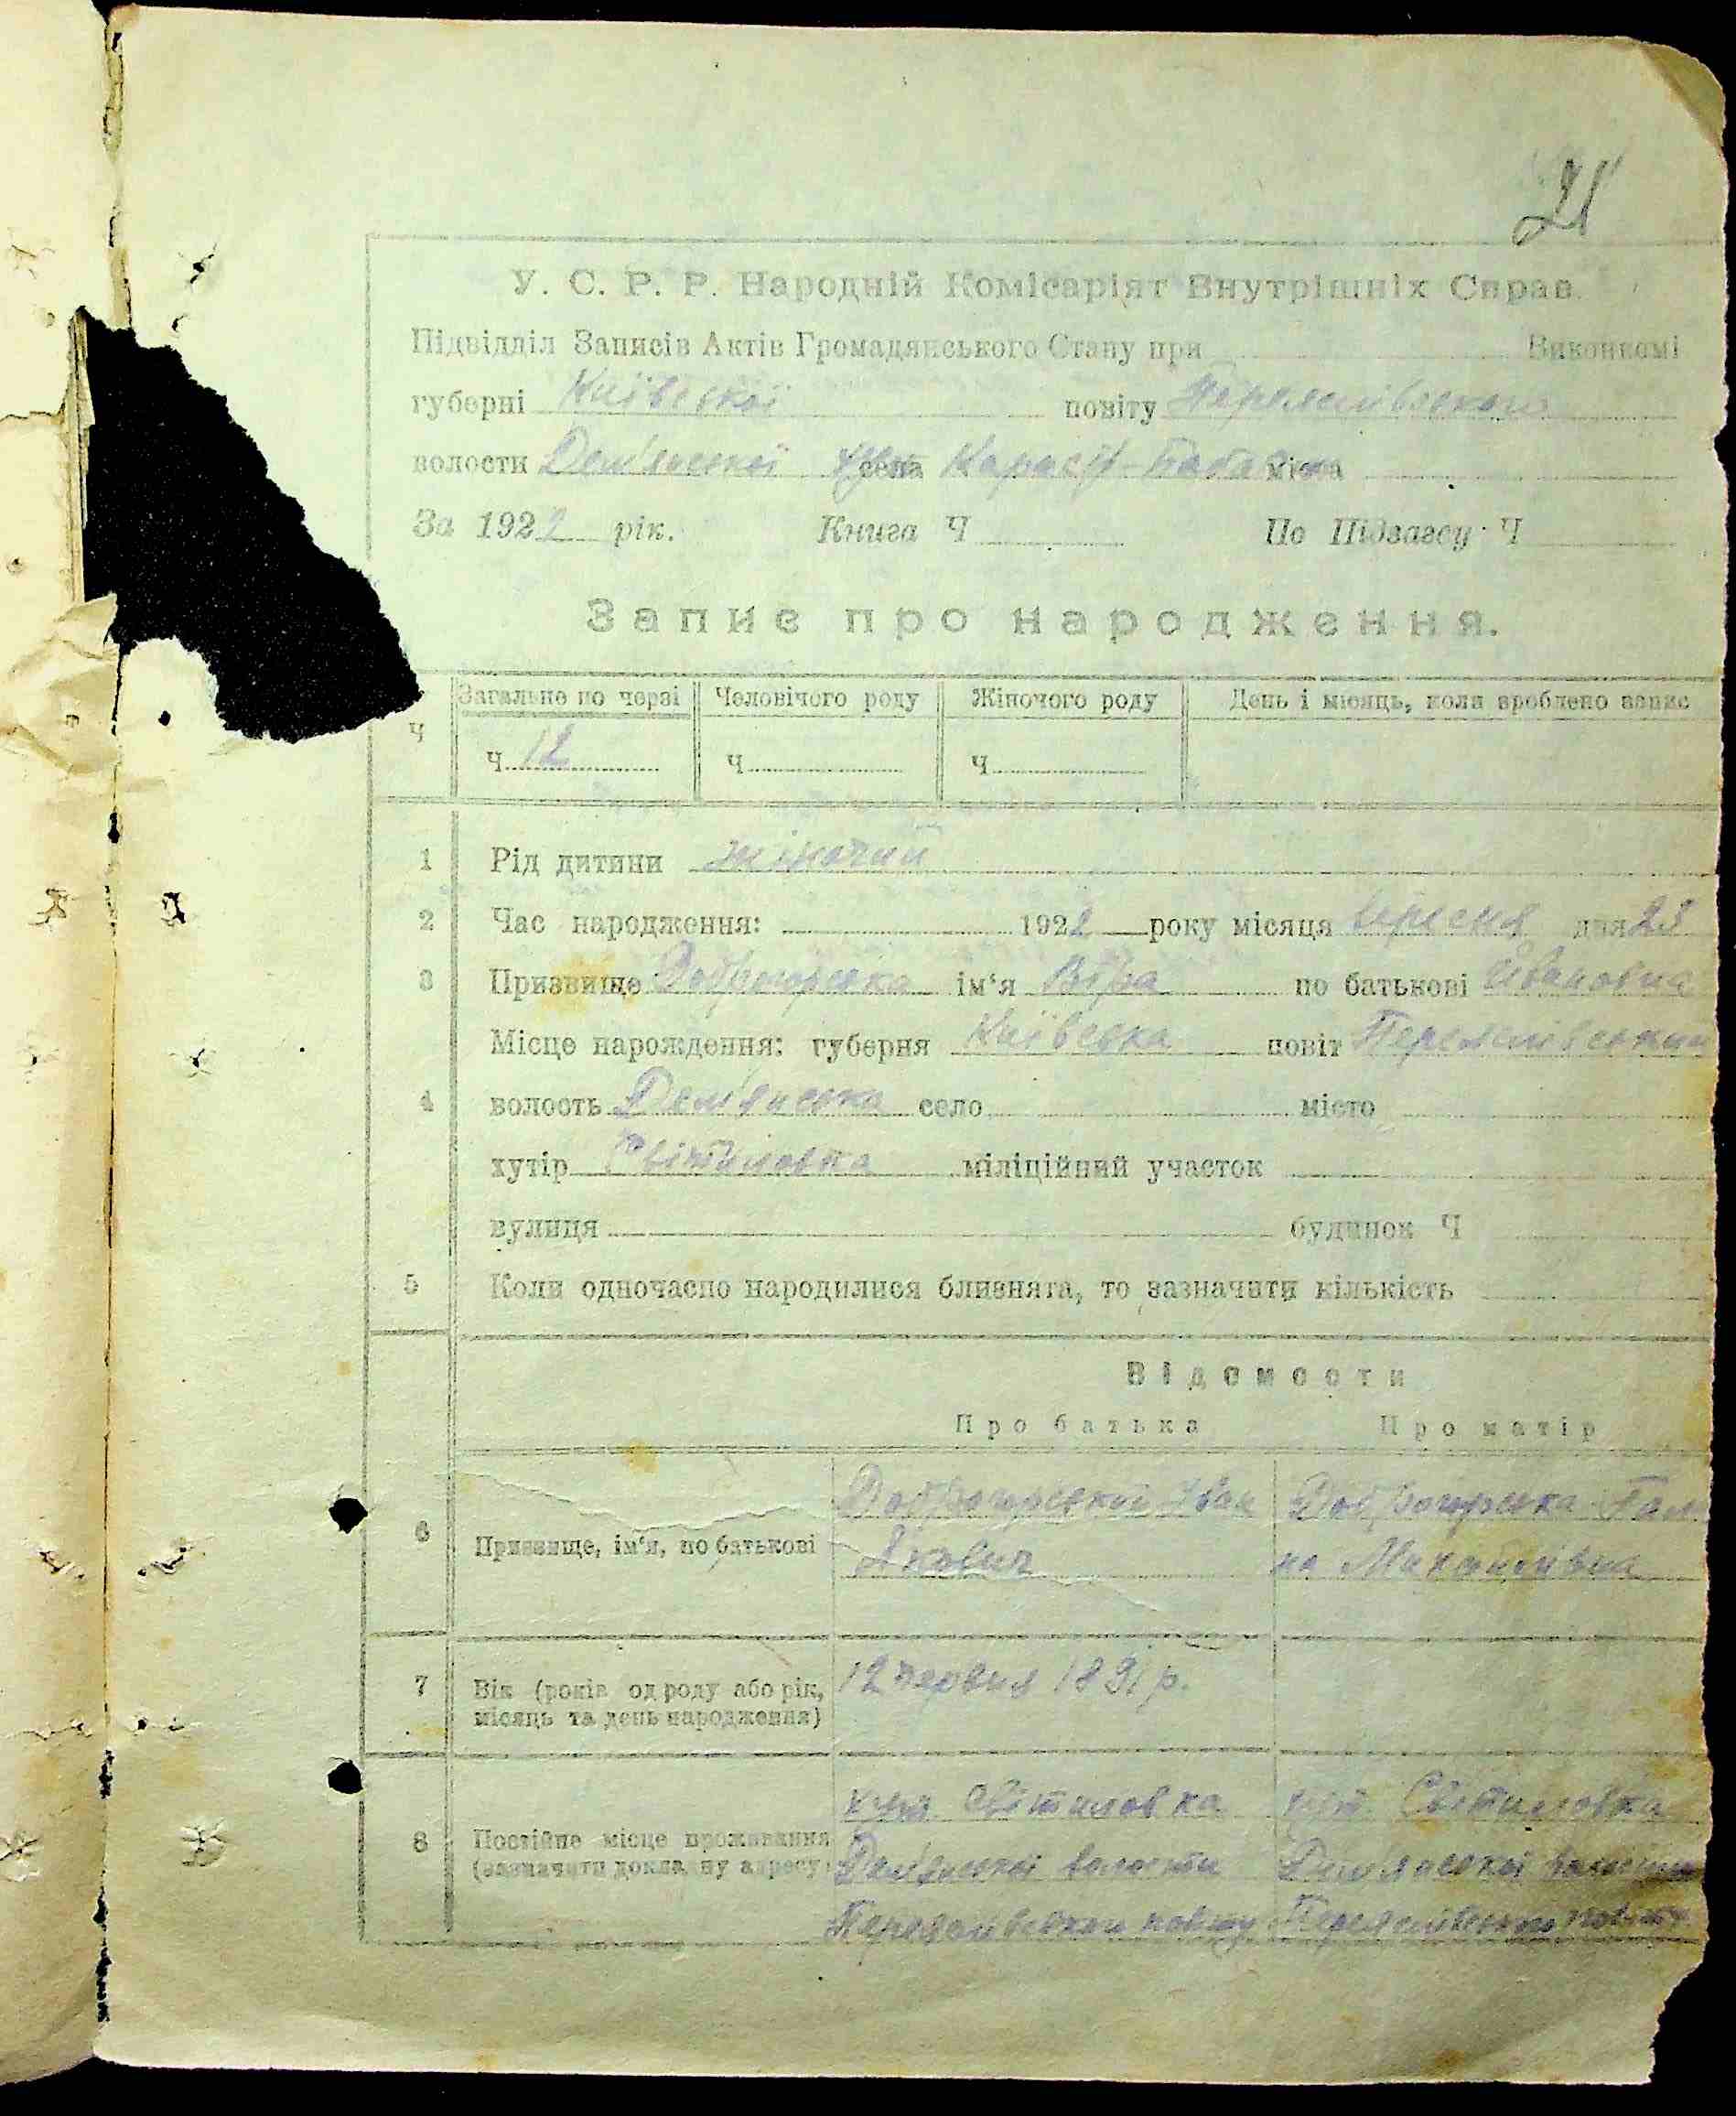 21
У. С. Р. Р. Народній Комісаріят Внутрішніх Справ.
Підвідділ Записів Актів Громадянського Стану при Виконкомі
губерні Київської повіту Переяслівського
волости Дем'янської села міста
За 1922 рік. Книга Ч По Підзагсу Ч
Запис про народження.
Ч Загальне по черзі Чоловічого роду Жіночого роду День і місяць, коли зроблено запис
Ч 12 Ч Ч
1 Рід дитини жіночий
2 Час народження: 1922 року місяця вересня дня 23
3 Призвище Доброгорська ім'я Віра по батькові Івановна
Місце нарождення: губерня Київська повіт Переяслівський
4 волость Дем'янська село місто
хутір Світиловка міліційний участок
вулиця будинок Ч
5 Коли одночасно народилися близнята, то зазначити кількість
Відомости
Про батька Про матір
6 Призвище, ім'я, по батькові Доброгорський Іван Доброгорська Гали
Якович на Михайлівна
7 Вік (років од роду або рік, 12 червня 1891 р.
місяць та день народження)
хут. Світиловка хут. Світиловка
8 Постійне місце проживання Дем'янської волости Дем'янської волости
(зазначити докладну адресу) Переяслівського повіту Переяслівського повіту